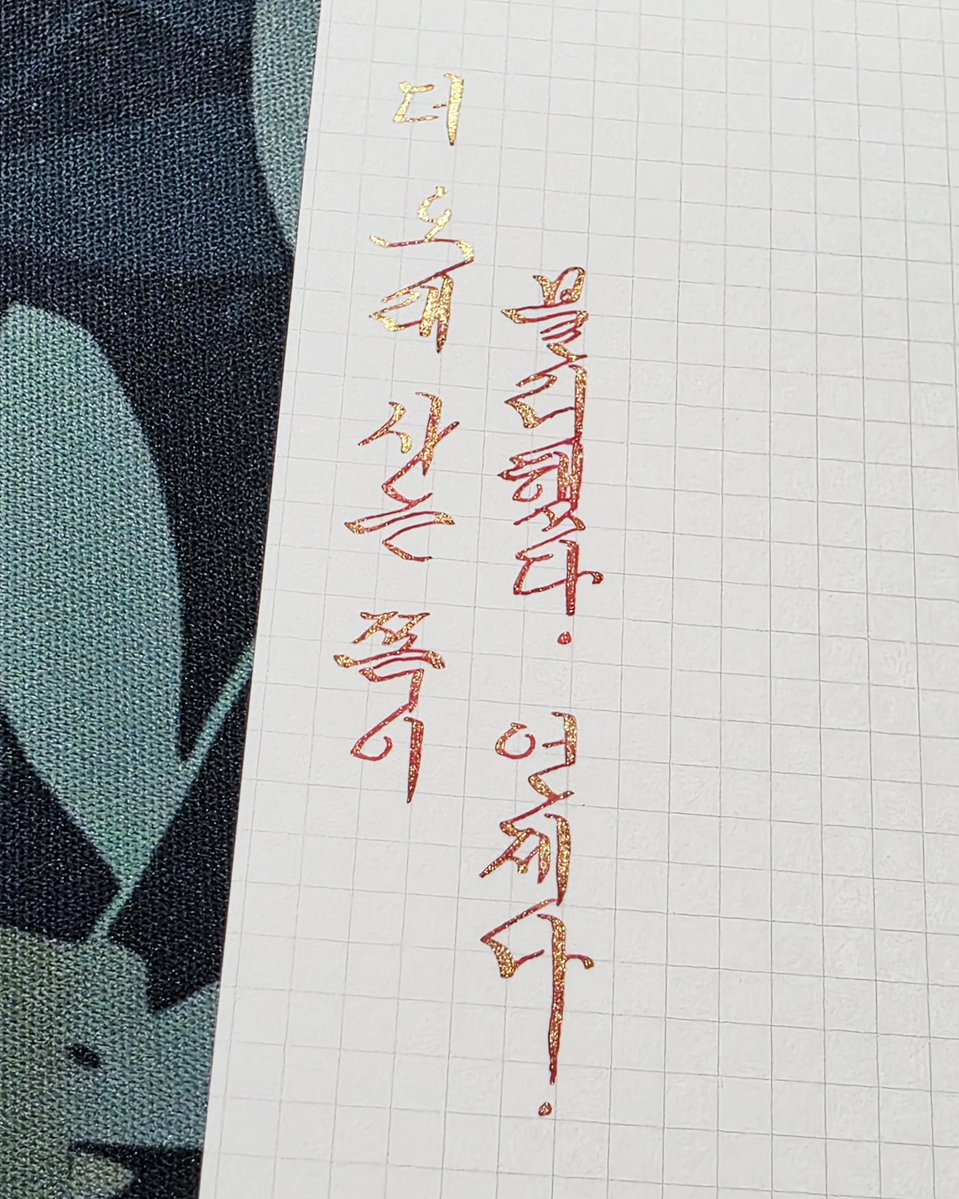 더 오래 사는 쪽이
불리했다. 언제나.